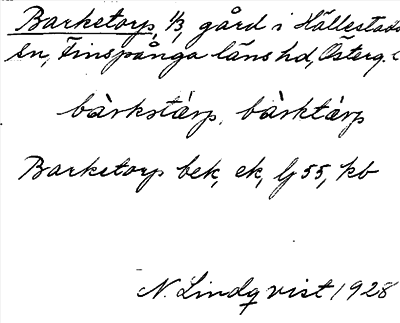 Barketorp, 1/3 gård i Hällestads
sn, Finspånga läns hd, Österg. l
bàrkstàrp, bàrktàrp
Barketorp bek, ek, lj 55, kb
N. Lindqvist 1928